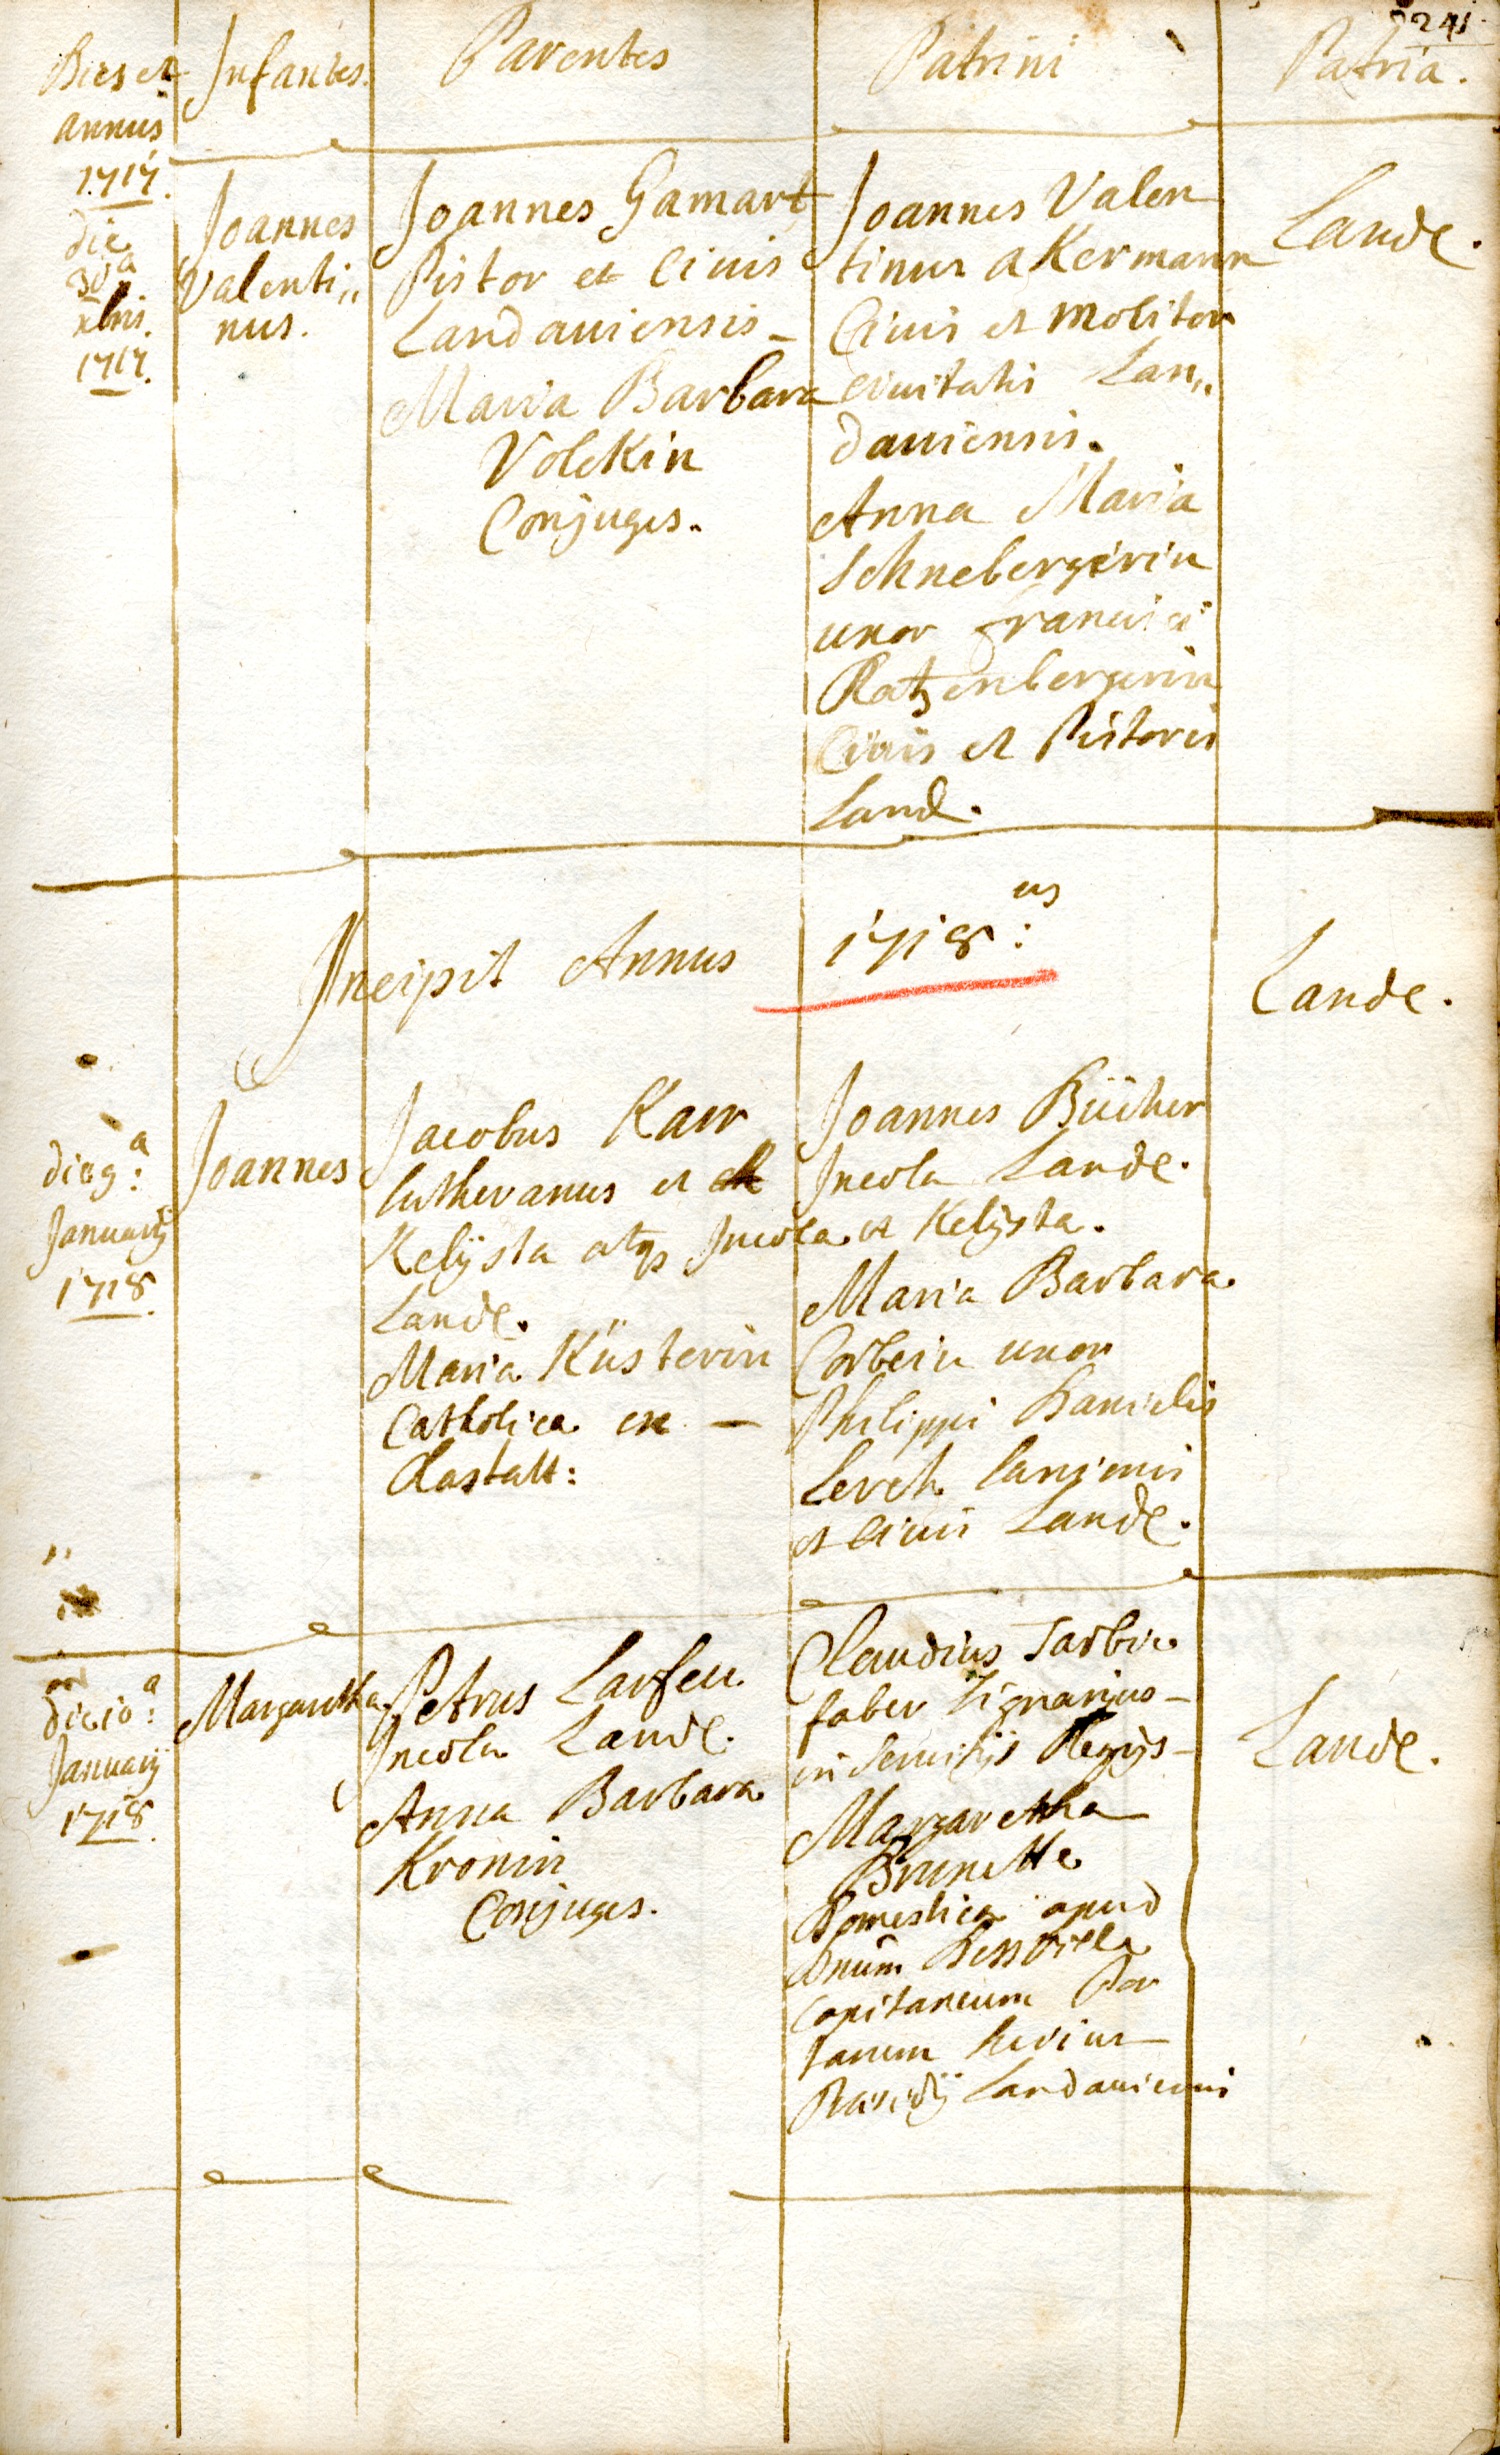 241
Dies et
annus
1717.
Infantes.
Parentes
Patrini
Patria.
die
30a
xbris.
1717.
Joannes
Valenti„
nus.
Joannes Gamart
Pistor et Civis
Landaviensis –
Maria Barbara
Volckin
Conjuges.
Joannes Valen
tinus aKermann
Civis et Molitor
civitatis Lan„
daviensis.
Anna Maria
Schnebergerin
uxor Francisci
Ratzenbergerin
Civis et Pistoris
Land.
Landẽ.
Incipit Annus 1718:us
Landẽ.
die 9:a
Januarij
1718.
Joannes
Jacobus Karr
lutheranus et
Kelijsta atq Incola
Landẽ.
Maria Küsterin
Catholica ex –
Rastatt:
Joannes Bücher
Incola Landẽ.
et Kelijsta.
Maria Barbara
Corbein uxor
Philippi Danielis
Lerch lanionis
et Civis Landẽ.
die 10:a
Januarij
1718.
Margaretha
Petrus Larfeu
Incola Landẽ.
Anna Barbara
Kronin
Conjuges.
Claudius Tarbin
faber lignarius –
in servitijs Regijs –
Margaretha
Brunette
Domestica apud
Dnum
capitaneum Por
tarum huius –
Praesidij Landaviensis
Landẽ.